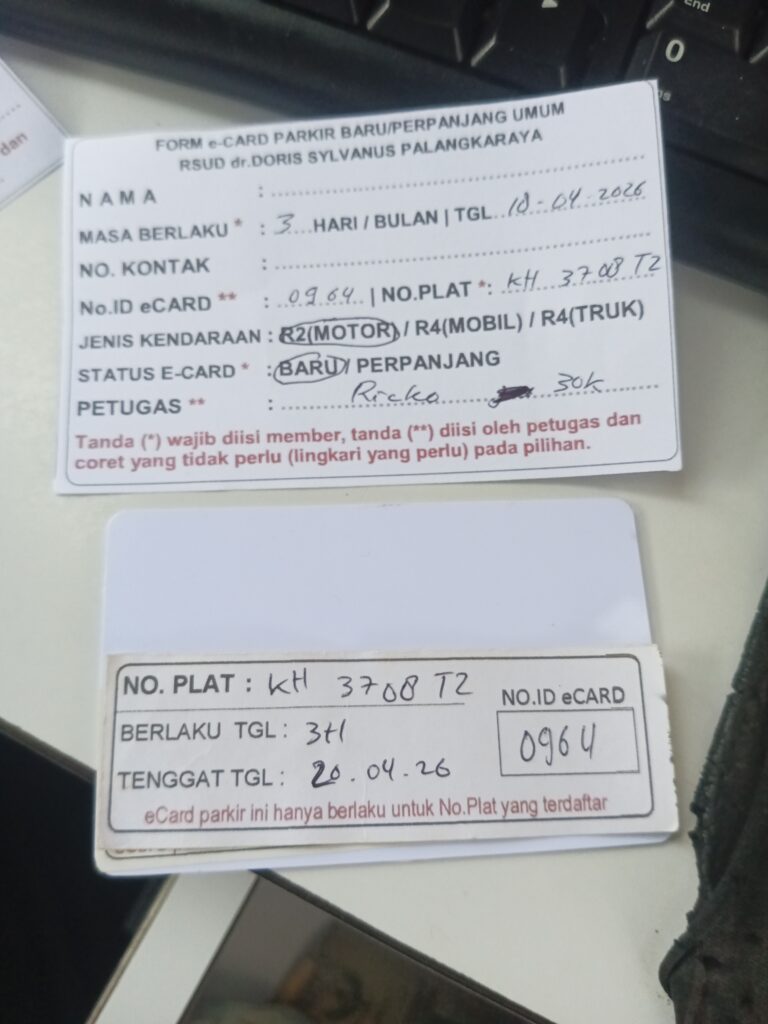 end
0
dan
FORM e-CARD PARKIR BARU/PERPANJANG UMUM
RSUD dr.DORIS SYLVANUS PALANGKARAYA
NAMA :
MASA BERLAKU * : 3 HARI / BULAN | TGL 18-04-2026
NO. KONTAK :
No.ID eCARD ** : 0964 | NO.PLAT *: KH 3708 TZ
JENIS KENDARAAN : R2(MOTOR) / R4(MOBIL) / R4(TRUK)
STATUS E-CARD * : BARU / PERPANJANG
PETUGAS ** : Ricko 30k
Tanda (*) wajib diisi member, tanda (**) diisi oleh petugas dan
coret yang tidak perlu (lingkari yang perlu) pada pilihan.
NO. PLAT : KH 3708 TZ
NO.ID eCARD
BERLAKU TGL : 3H
0964
TENGGAT TGL : 20.04.26
eCard parkir ini hanya berlaku untuk No.Plat yang terdaftar